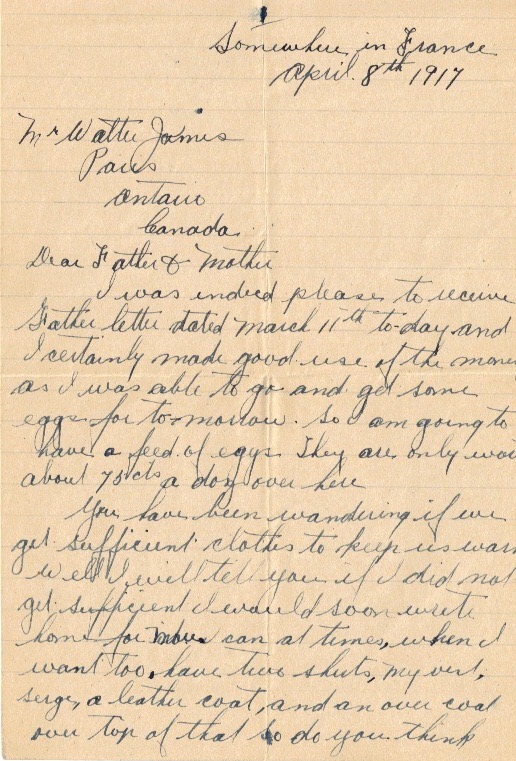 Somewhere in France
April 8th 1917
Mr Walter James
Paris
Ontario
Canada
Dear Father & Mother
I was indeed please to receive
Father letter dated March 11th to-day and
I certainly made good use of the money
as I was able to go and get some
eggs for to-morrow. So am going to
have a feed of eggs They are only
about 75 cts a doz over here
You have been wandering if we
get sufficient clothes to keep us warm
Well I will tell you if I did not
get sufficient I would soon write
home for more can at times, when I
want too, have two shirts, my vest,
serge, a leather coat, and an over coat
over top of that so do you think